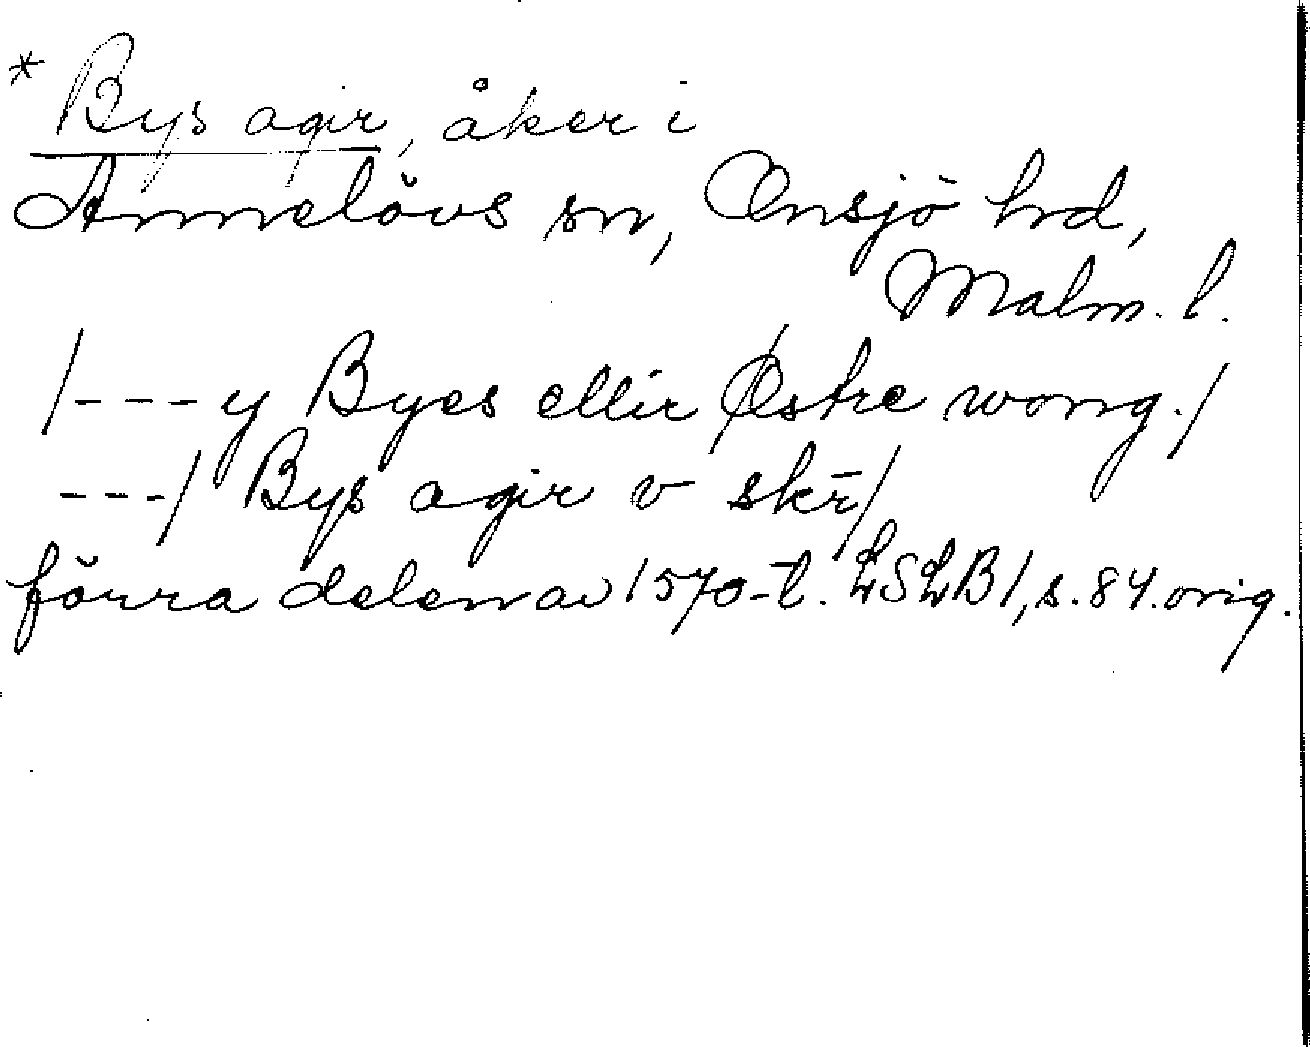 * Bys agir, åker i
Annelövs sn, Onsjö hrd,
Malm. l.
/---y Byes ellir Østre wong./
---/ Bys agir v skr̄/
förra delen av 1570-t. LSLB1, s. 84. orig.